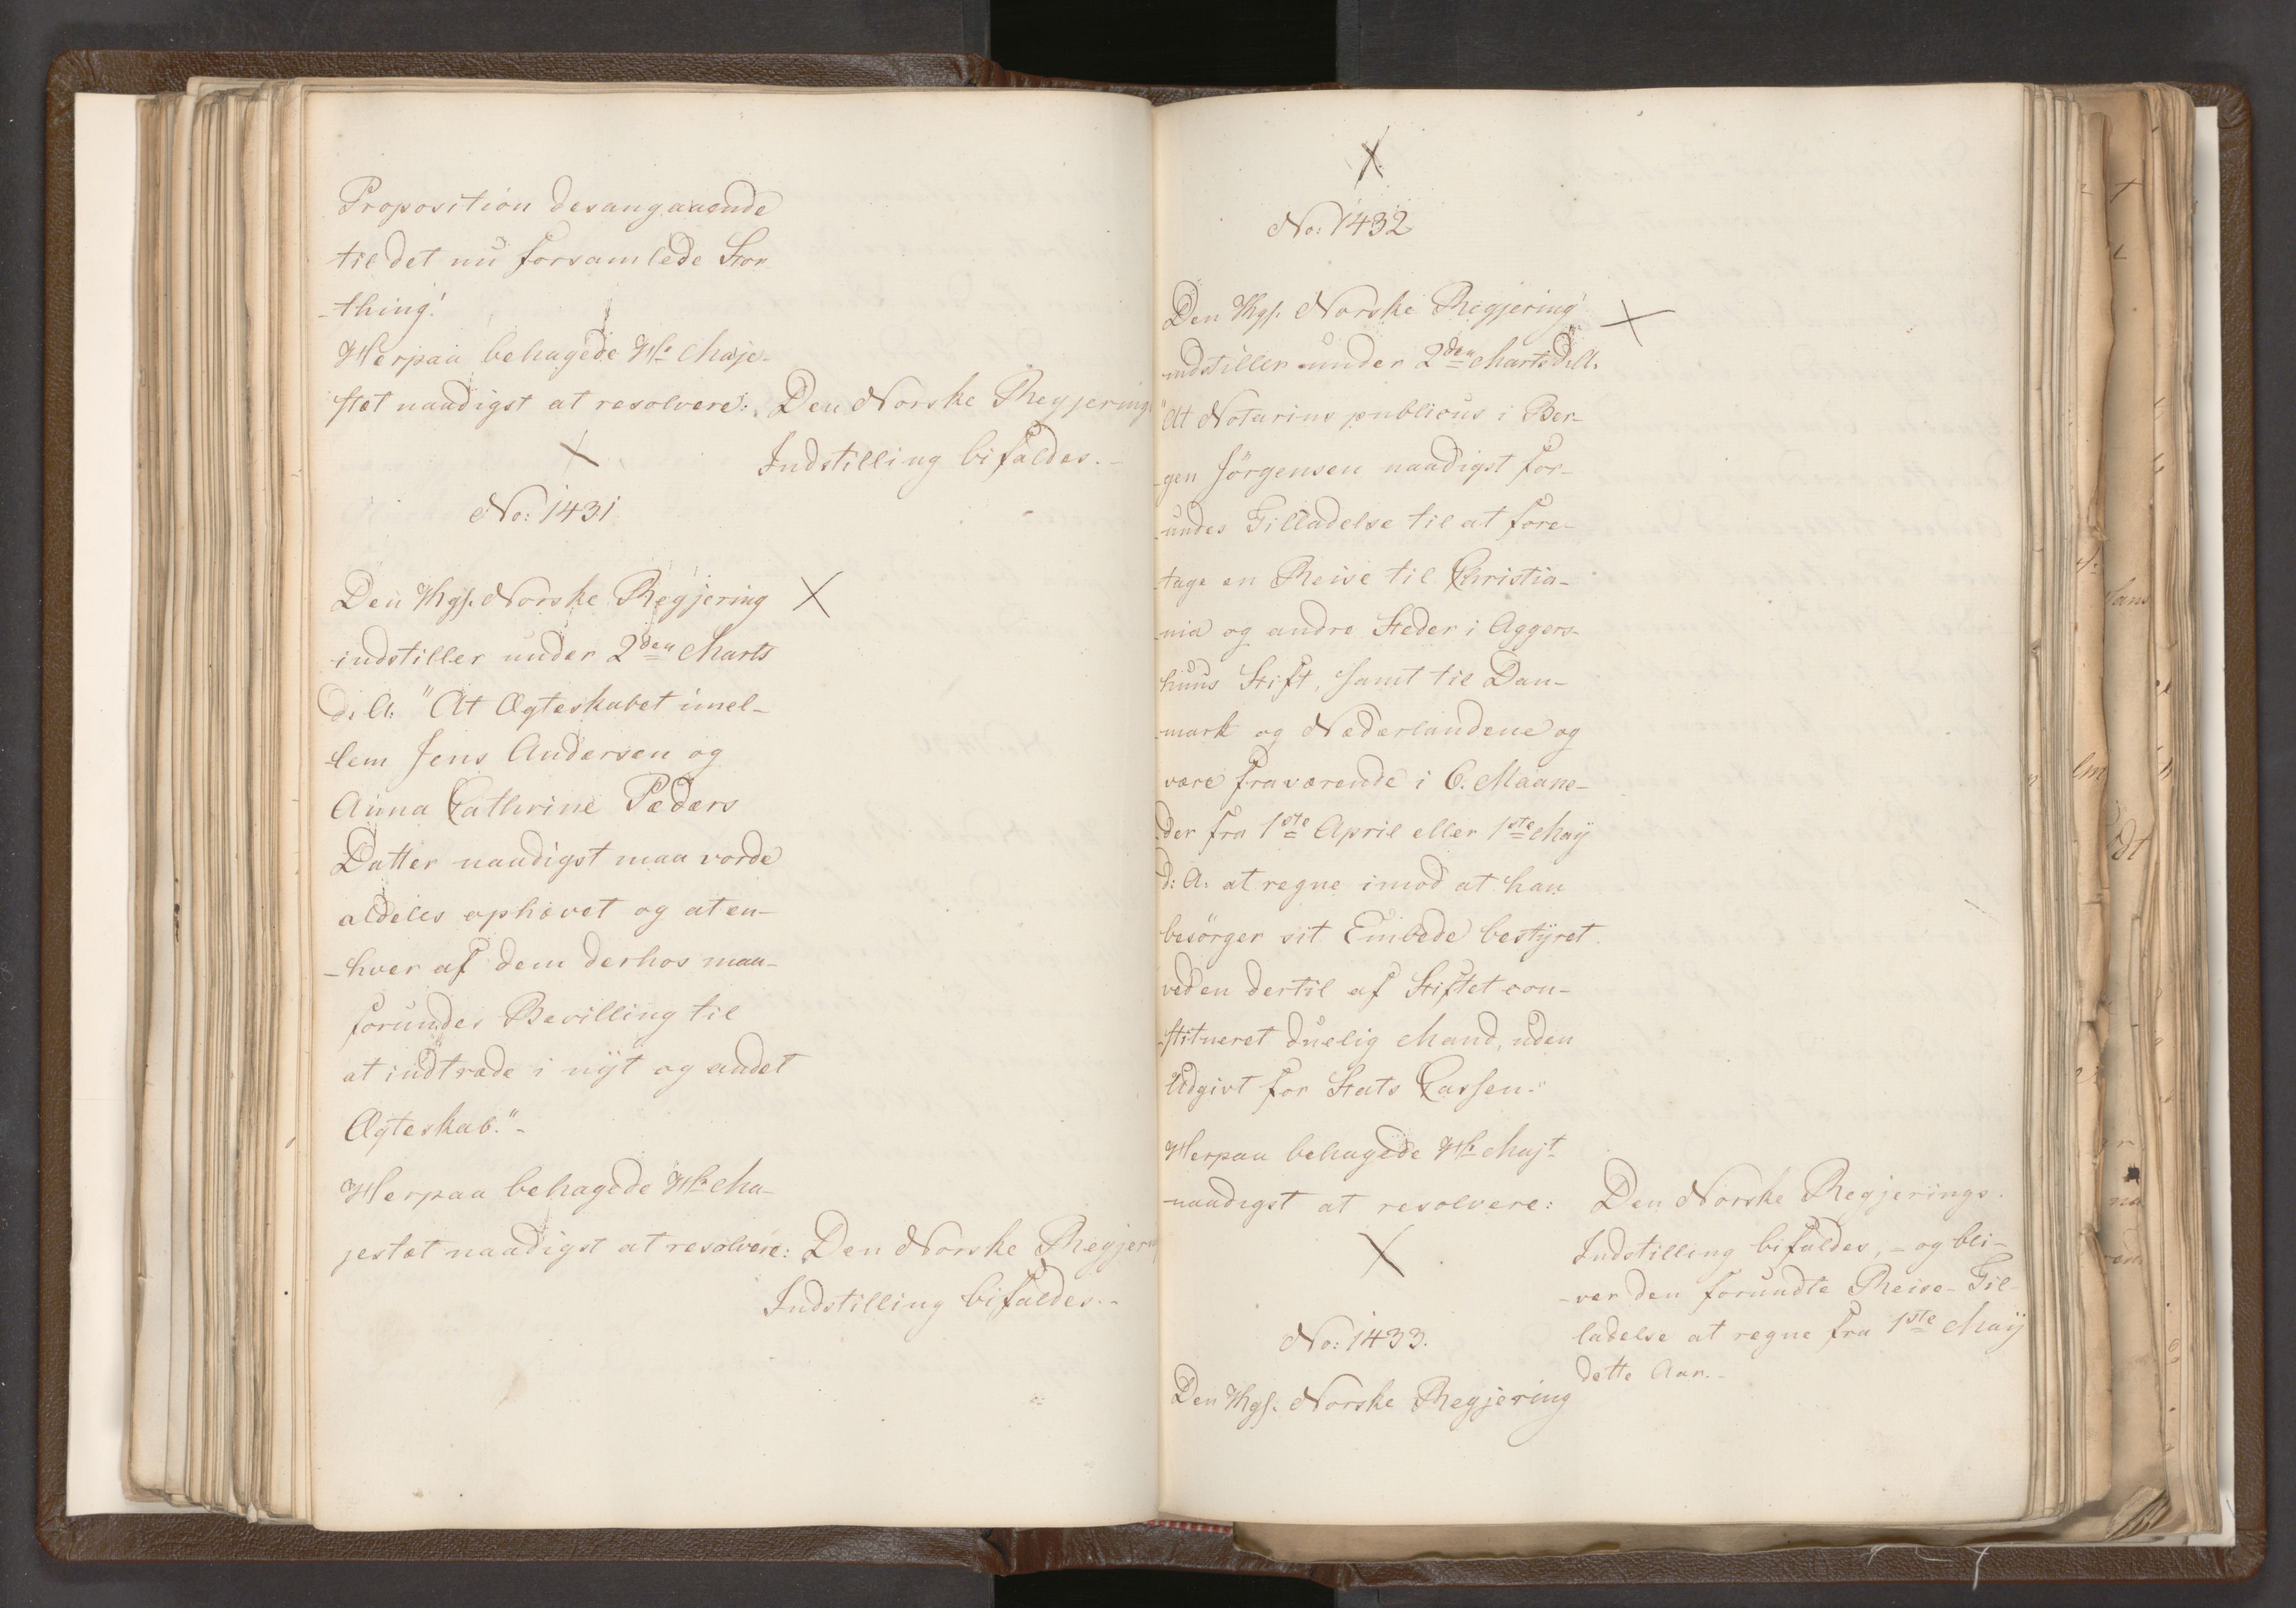 Proposition desangaaende
til det nu forsamlede Stor
-thing!
Herpaa behagede Hs Maje-
stæt naadigst at resolvere:
Den Norske Regjerings
Indstilling bifaldes.-
No: 1431
Den Kgl. Norske Regjering
indstiller under 2den Marts
d. A. "At Ægteskabet imel-
-lem Jens Andersen og
Anna Cathrine Peders
Datter naadigst maa vorde
aldeles ophævet og at en-
-hver af dem derhos maa-
forundes Bevilling til
at indtræde i nÿt og andet
Ægteskab."-
Herpaa behagede Hs Ma-
jestæt naadigst at resolvere:
Den Norske Regjer
Indstilling bifaldes.-
No: 1432
Den Kgl. Norske Regjering
indstiller under 2den Marts d. A.
"At Notarius publicus i Ber-
-gen Jörgensen naadigst for-
-undes Tilladelse til at fore-
-tage en Reise til Christia-
-nia og andre Steder i Aggers-
huus Stift, samt til Dan-
-mark og Nederlandene og
være fraværende i 6. Maane-
der fra 1ste April eller 1ste Maÿ
d: A. at regne imod at han
besörger sit Embede bestÿret
ved en dertil af Stiftet con-
-stitueret duelig Mand, uden
Udgivt for Stats Cassen."
Herpaa behagede Hs Majt
naadigst at resolvere:
Den Norske Regjerings
Indstilling bifaldes, - og bli-
-ver den forundte Reise-Til-
ladelse at regne fra 1ste Maÿ
dette Aar.-
No: 1433.
Den Kgl. Norske Regjering